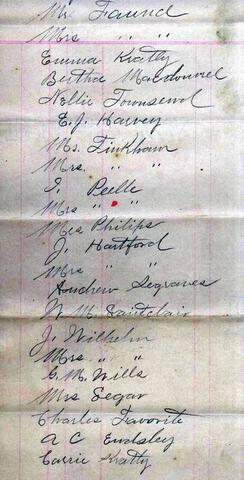 Mr. Faund
Mrs " "
Emma Kratly
Bertha Macdonnel
Nellie Townsend
E. J. Harvey
Ms. Finkham
Mrs. " "
I. Peelle
Mrs " "
Mrs Philips
J. Hartford
Mrs " "
Andrew Segraves
W. M. Santclair
J. Wilhelm
Mrs " "
G. M. Wills
Mrs Segar
Charles Favorite
A C Endsley
Carrie Kratly